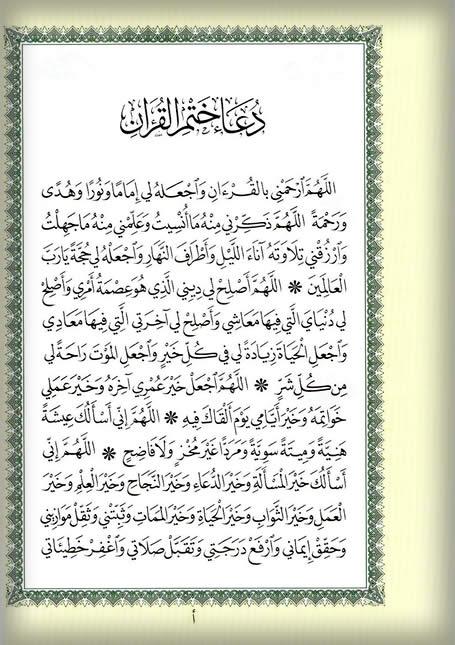 دُعَاءُ خَتْمِ الْقُرْآنِ
اللَّهُمَّ ارْحَمْنِي بِالْقُرْءَانِ وَاجْعَلْهُ لِي إِمَامًا وَنُورًا وَهُدًى
وَرَحْمَةً اللَّهُمَّ ذَكِّرْنِي مِنْهُ مَا أُنْسِيتُ وَعَلِّمْنِي مِنْهُ مَا جَهِلْتُ
وَارْزُقْنِي تِلَاوَتَهُ آنَاءَ اللَّيْلِ وَأَطْرَافَ النَّهَارِ وَاجْعَلْهُ لِي حُجَّةً يَارَبَّ
الْعَالَمِينَ ❋ اللَّهُمَّ أَصْلِحْ لِي دِينِي الَّذِي هُوَ عِصْمَةُ أَمْرِي وَأَصْلِحْ
لِي دُنْيَايَ الَّتِي فِيهَا مَعَاشِي وَأَصْلِحْ لِي آخِرَتِي الَّتِي فِيهَا مَعَادِي
وَاجْعَلِ الْحَيَاةَ زِيَادَةً لِي فِي كُلِّ خَيْرٍ وَاجْعَلِ الْمَوْتَ رَاحَةً لِي
مِن كُلِّ شَرٍّ ❋ اللَّهُمَّ اجْعَلْ خَيْرَ عُمْرِي آخِرَهُ وَخَيْرَ عَمَلِي
خَوَاتِمَهُ وَخَيْرَ أَيَّامِي يَوْمَ أَلْقَاكَ فِيهِ ❋ اللَّهُمَّ إِنِّي أَسْأَلُكَ عِيشَةً
هَنِيَّةً وَمِيتَةً سَوِيَّةً وَمَرَدًّا غَيْرَ مُخْزٍ وَلَا فَاضِحٍ ❋ اللَّهُمَّ إِنِّي
أَسْأَلُكَ خَيْرَ الْمَسْأَلَةِ وَخَيْرَ الدُّعَاءِ وَخَيْرَ النَّجَاحِ وَخَيْرَ الْعِلْمِ وَخَيْرَ
الْعَمَلِ وَخَيْرَ الثَّوَابِ وَخَيْرَ الْحَيَاةِ وَخَيْرَ الْمَمَاتِ وَثَبِّتْنِي وَثَقِّلْ مَوَازِينِي
وَحَقِّقْ إِيمَانِي وَارْفَعْ دَرَجَتِي وَتَقَبَّلْ صَلَاتِي وَاغْفِرْ خَطِيئَاتِي
أ